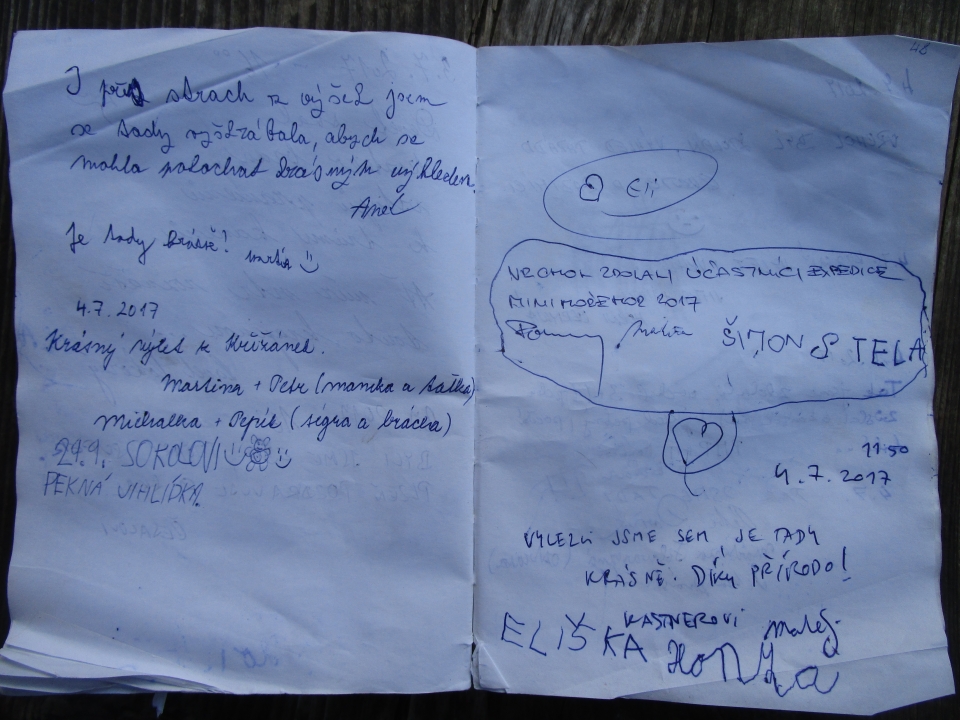 I přes strach z výšek jsem
se tady vyškrábala, abych se
mohla pokochat krásným výhledem.
Je tady krásně!
4.7.2017
Krásný výlet z Křižánek.
Martina + Petr (mamka a taťka)
Michalka + Pepík (ségra a brácha)
29.9. SOKOLOVI
PĚKNÁ VIHLÍDKA.
46
VRCHOL ZDOLALI ÚČASTNÍCI EXPEDICE
2017
ŠIMON STELA
11:50
4.7.2017
VYLEZLI JSME SEM, JE TADY
KRÁSNĚ. DÍKY PŘÍRODO!
KASTNEROVI
ELIŠKA
HONZA